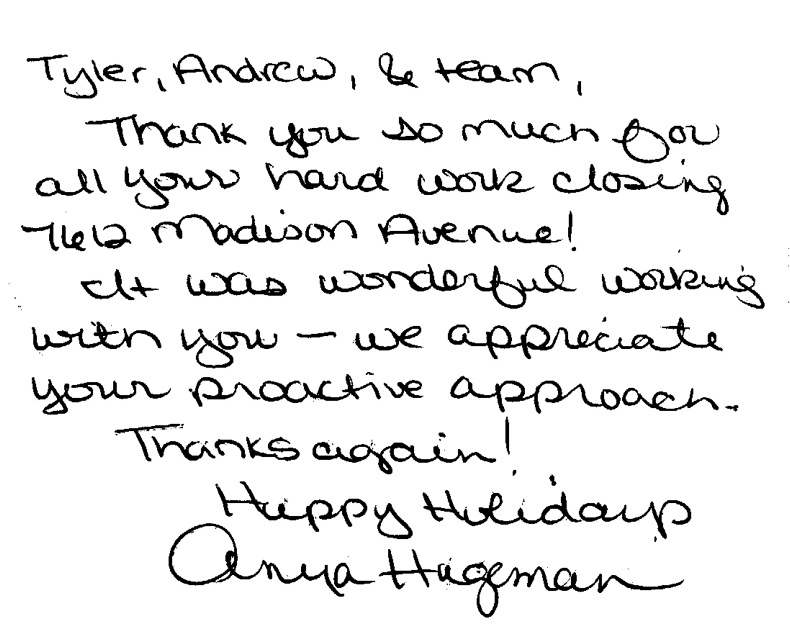 Tyler, Andrew, & team,
Thank you so much for
all your hard work closing
7612 Madison Avenue!
It was wonderful working
with you – we appreciate
your proactive approach.
Thanks again!
Happy Holidays
Anya Hageman